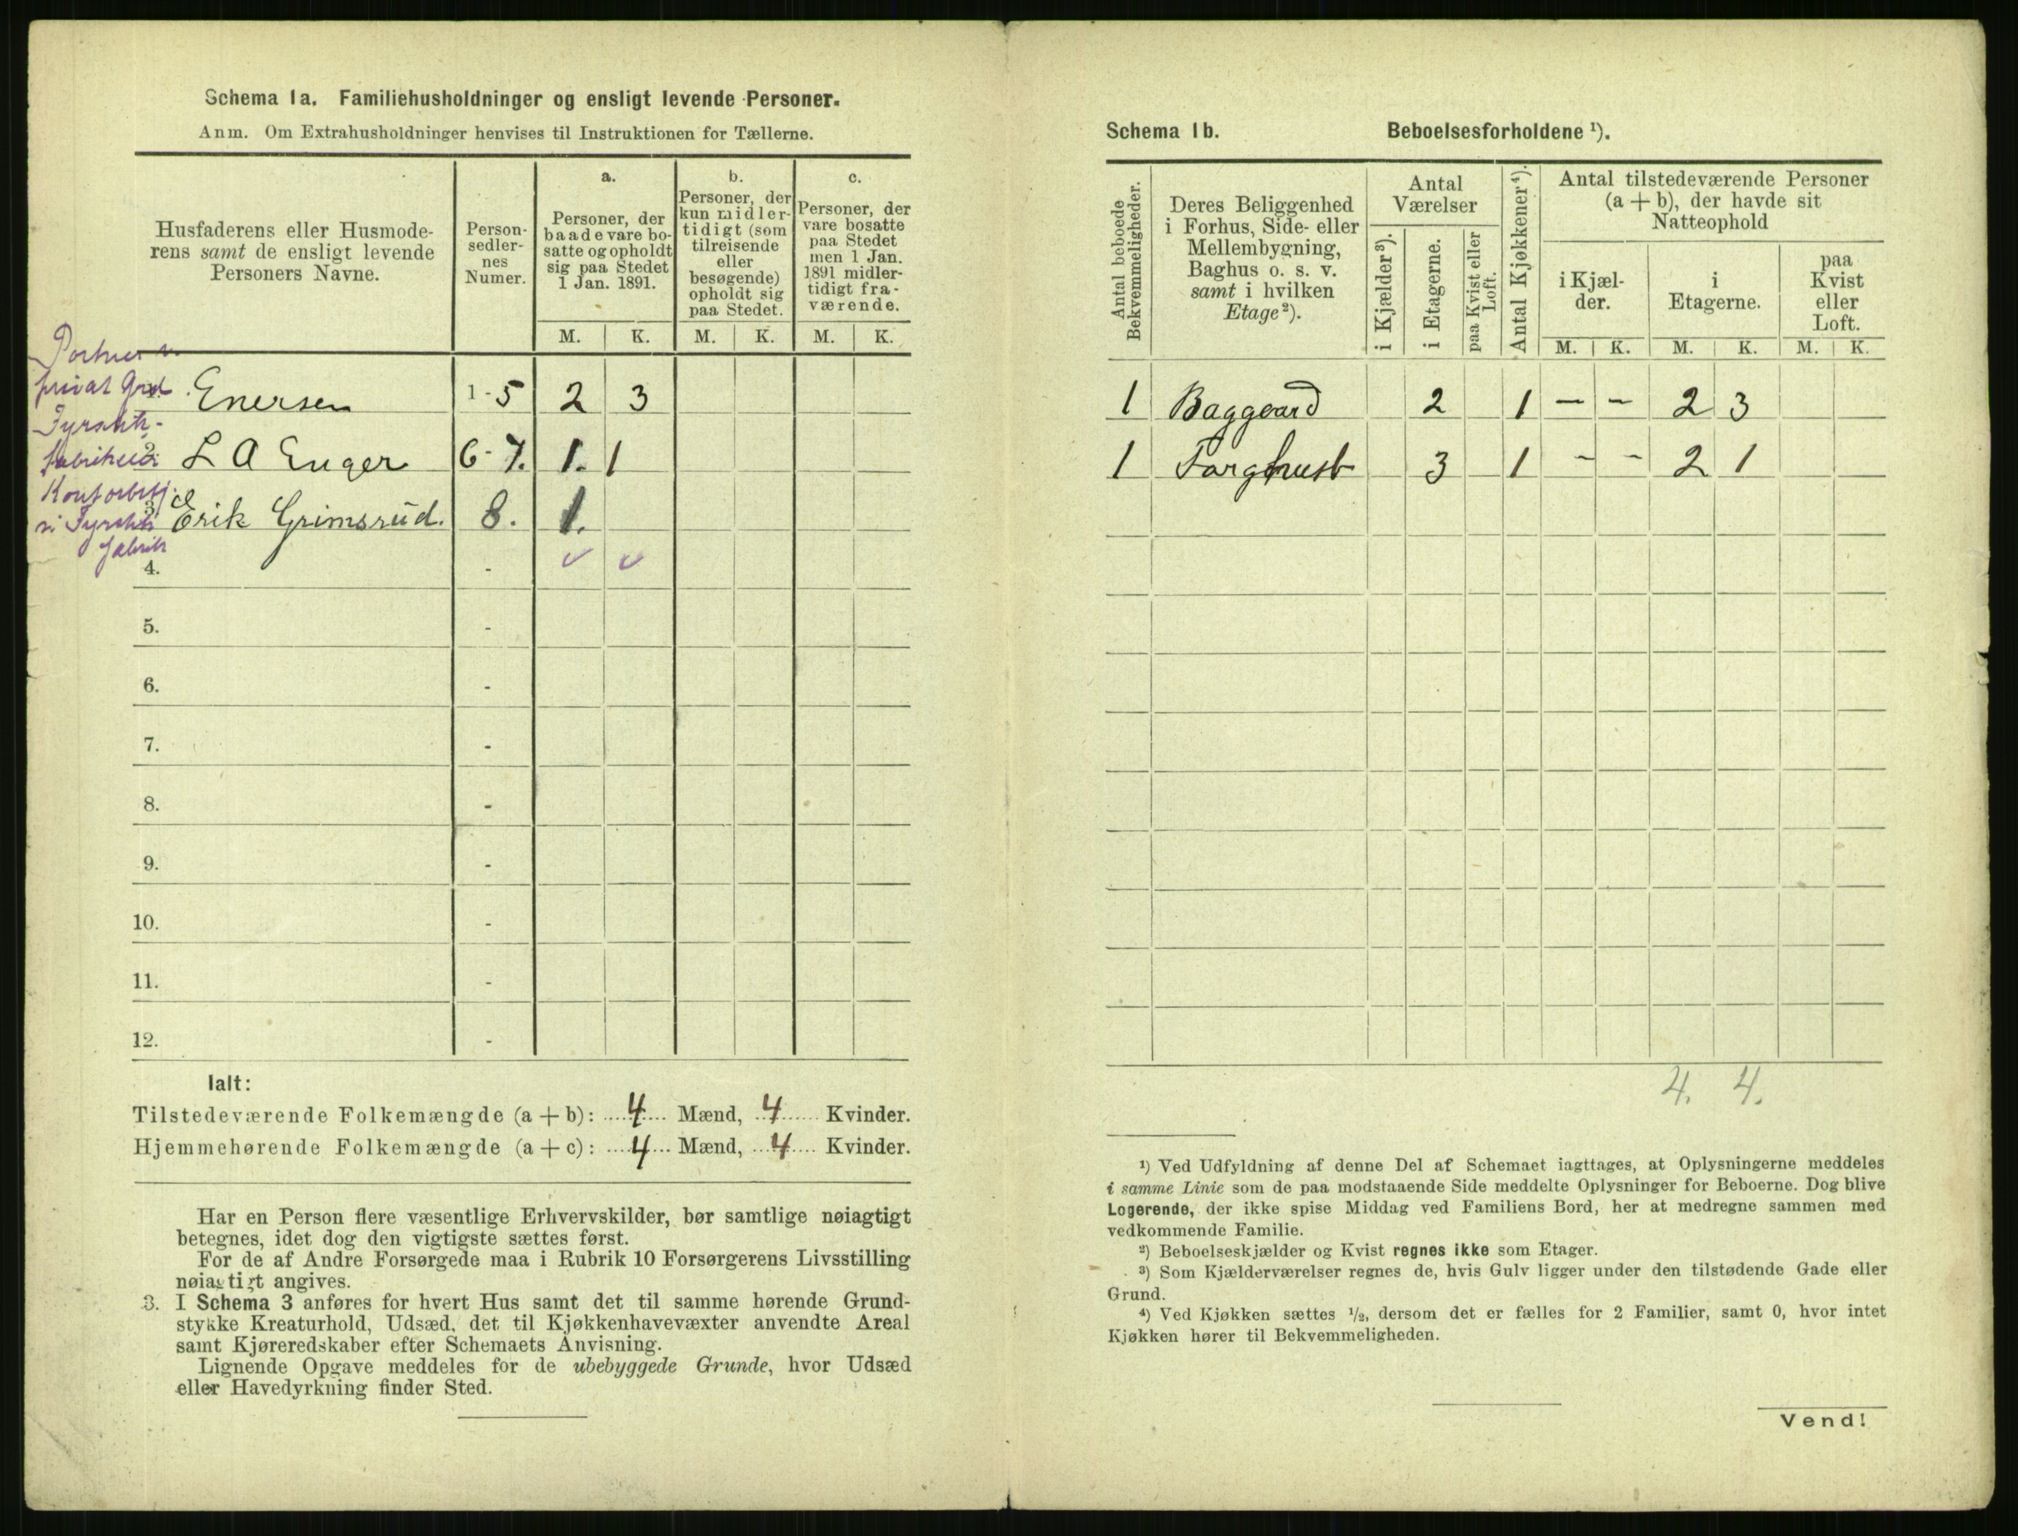 Schema 1a. Familiehusholdninger og ensligt levende Personer.
Anm. Om Extrahusholdninger henvises til Instruktionen for Tællerne.
Husfaderens eller Husmode-
rens samt de ensligt levende
Personers Navne.
Person-
sedler-
nes
Numer.
a.
Personer, der
baade vare bo-
satte og opholdt
sig paa Stedet
1 Jan. 1891.
b.
Personer, der
kun midler-
tidigt (som
tilreisende
eller
besøgende)
opholdt sig
paa Stedet.
c.
Personer, der
vare bosatte
paa Stedet
men 1 Jan.
1891 midler-
tidigt fra-
værende.
M. K. M. K. M. K.
Portner
privat
Enersen 1-5 2 3
Fyrstik-
2. L A Enger 6-7. 1. 1
3. Erik Grimsrud. 8. 1.
i Fyrstik
fabrik
4. -
5. -
6. -
7. -
8. -
9. -
10. -
11. -
12. -
Ialt:
Tilstedeværende Folkemængde (a + b): 4 Mænd, 4 Kvinder.
Hjemmehørende Folkemængde (a + c): 4 Mænd, 4 Kvinder.
Har en Person flere væsentlige Erhvervskilder, bør samtlige nøiagtigt
betegnes, idet dog den vigtigste sættes først.
For de af Andre Forsørgede maa i Rubrik 10 Forsørgerens Livsstilling
nøiagtigt angives.
3. I Schema 3 anføres for hvert Hus samt det til samme hørende Grund-
stykke Kreaturhold, Udsæd, det til Kjøkkenhavevæxter anvendte Areal
samt Kjøreredskaber efter Schemaets Anvisning.
Lignende Opgave meddeles for de ubebyggede Grunde, hvor Udsæd
eller Havedyrkning finder Sted.
Schema 1b. Beboelsesforholdene ¹).
Antal beboede
Bekvemmeligheder.
Deres Beliggenhed
i Forhus, Side- eller
Mellembygning,
Baghus o. s. v.
samt i hvilken
Etage²).
Antal
Værelser
i Kjælder³).
i Etagerne.
paa Kvist eller
Loft.
Antal Kjøkkener⁴).
Antal tilstedeværende Personer
(a + b), der havde sit
Natteophold
i Kjæl-
der.
i
Etagerne.
paa
Kvist
eller
Loft.
M. K. M. K. M. K.
1 Baggaard 2 1 - - 2 3
1 3 1 - - 2 1
4. 4.
¹) Ved Udfyldning af denne Del af Schemaet iagttages, at Oplysningerne meddeles
i samme Linie som de paa modstaaende Side meddelte Oplysninger for Beboerne. Dog blive
Logerende, der ikke spise Middag ved Familiens Bord, her at medregne sammen med
vedkommende Familie.
²) Beboelseskjælder og Kvist regnes ikke som Etager.
³) Som Kjælderværelser regnes de, hvis Gulv ligger under den tilstødende Gade eller
Grund.
⁴) Ved Kjøkken sættes ¹/₂, dersom det er fælles for 2 Familier, samt 0, hvor intet
Kjøkken hører til Bekvemmeligheden.
Vend!